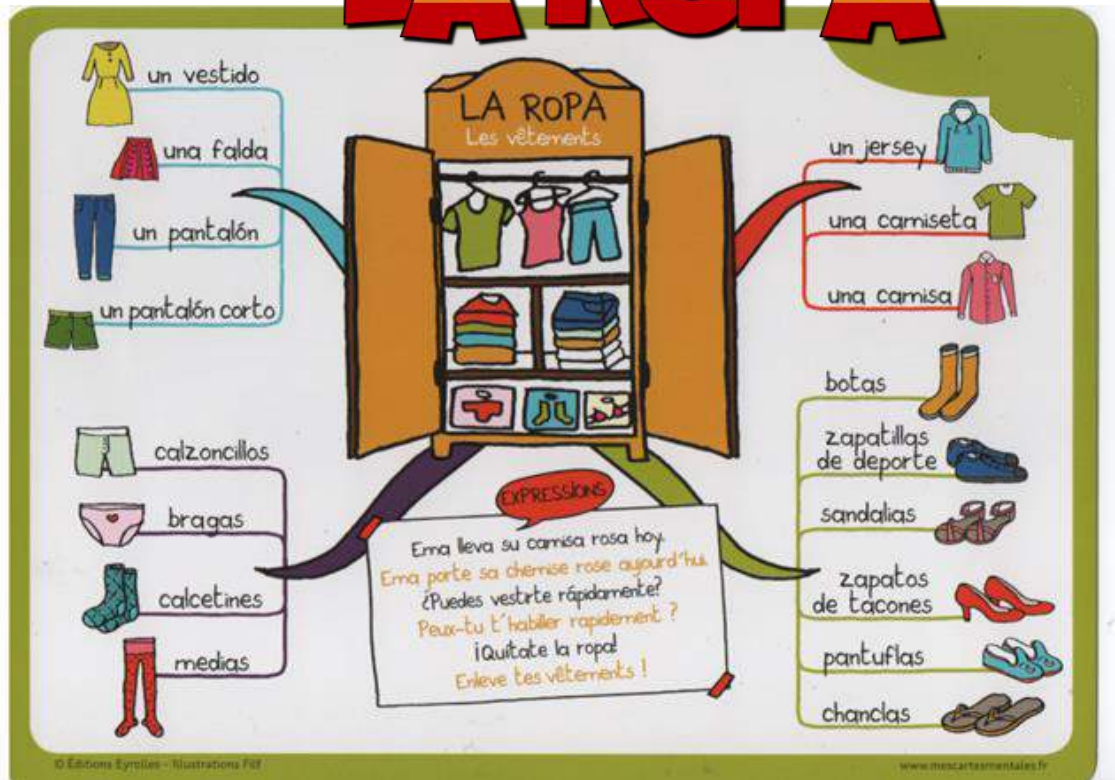 LA ROPA
LA ROPA
Les vêtements
un vestido
una falda
un pantalón
un pantalón corto
un jersey
una camiseta
una camisa
calzoncillos
bragas
calcetines
medias
botas
zapatillas
de deporte
sandalias
zapatos
de tacones
pantuflas
chanclas
EXPRESSIONS
Ema lleva su camisa rosa hoy.
Ema porte sa chemise rose aujourd'hui.
¿Puedes vestirte rápidamente?
Peux-tu t'habiller rapidement ?
¡Quítate la ropa!
Enleve tes vêtements !
© Éditions Eyrolles - Illustrations Filf
www.mescartesmentales.fr